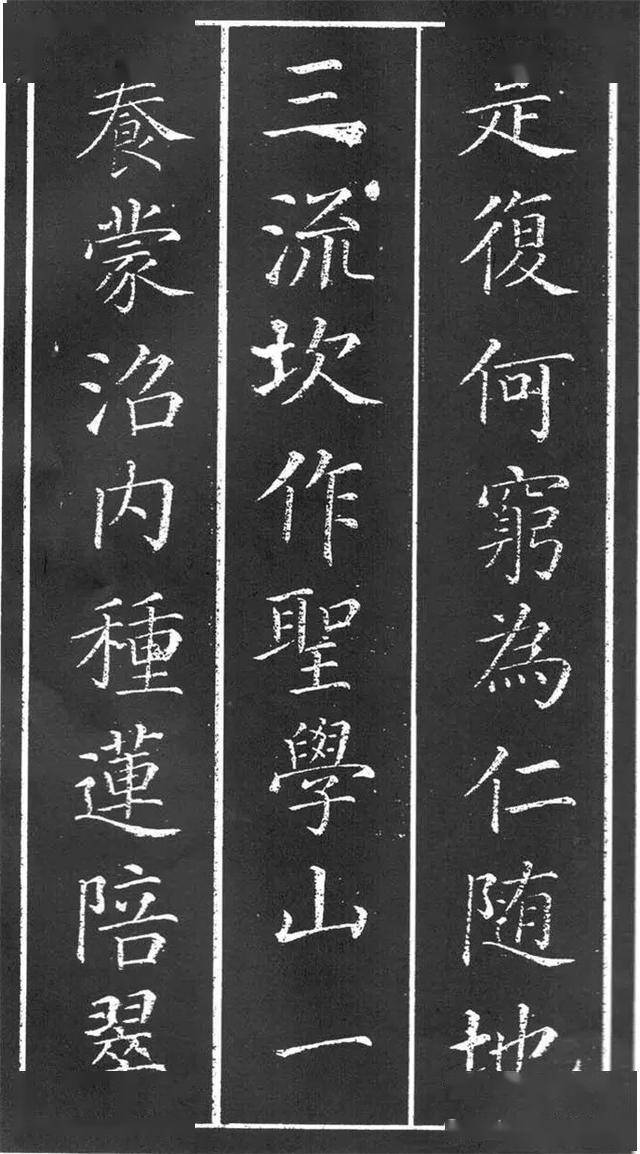 復何窮為仁随地
三流坎作聖學山一
養蒙沼内種蓮陪翠